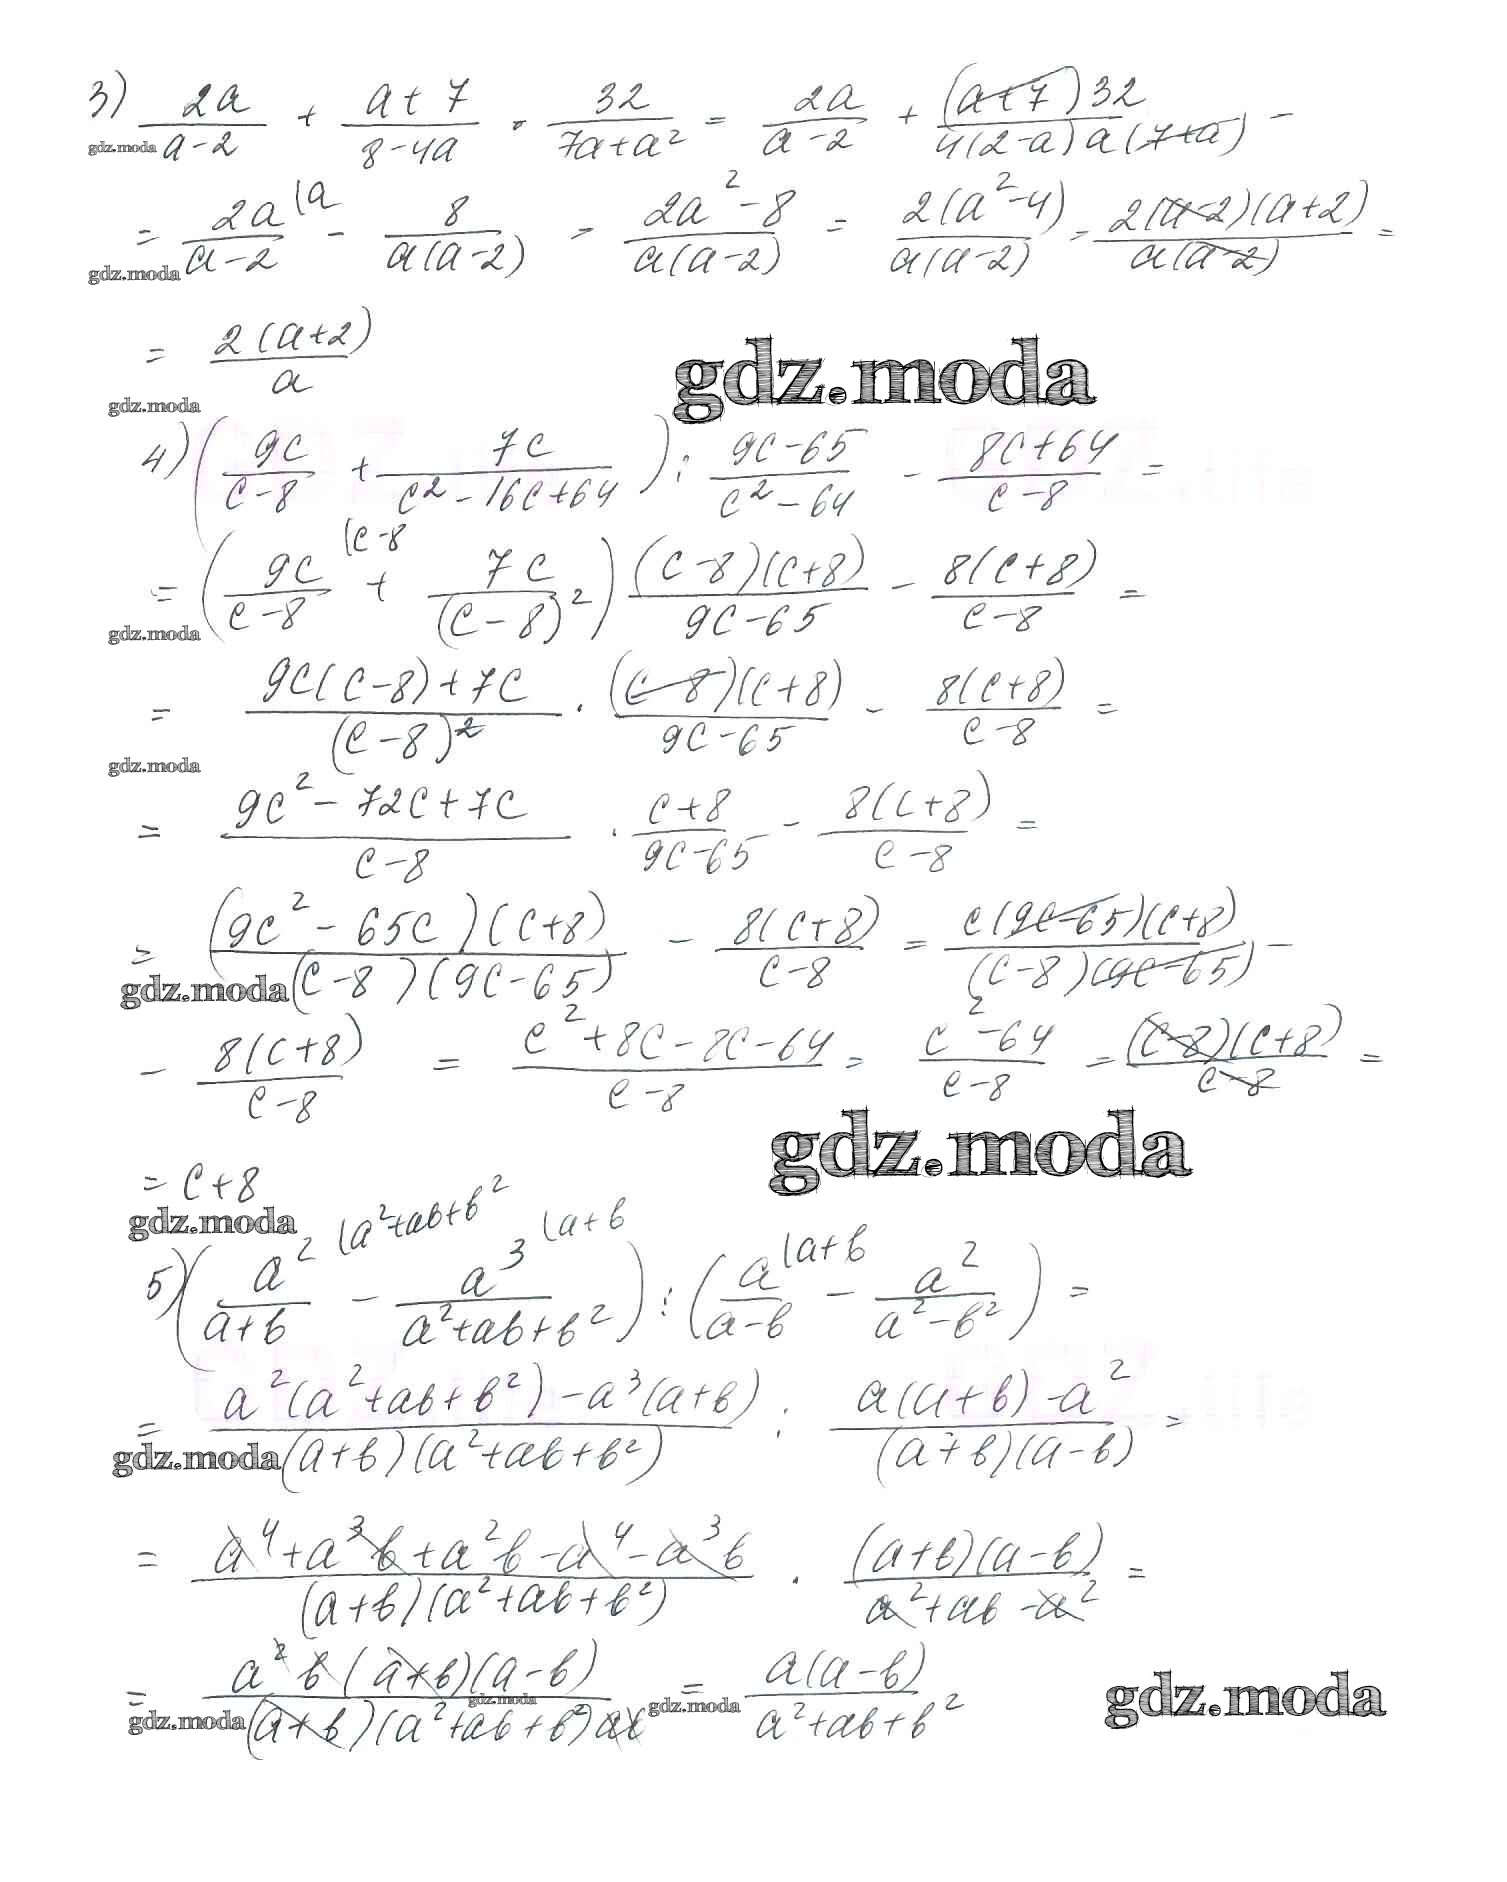 3) 2a/(a-2) + (a+7)/(8-4a) · 32/(7a+a²) = 2a/(a-2) + (a+7)32/(4(2-a)a(7+a)) -
gdz.moda
= 2a(a/(a-2) - 8/(a(a-2)) = (2a²-8)/(a(a-2)) = 2(a²-4)/(a(a-2)) = 2(a-2)(a+2)/(a(a-2)) =
gdz.moda
= 2(a+2)/a
gdz.moda
gdz.moda
4) (9c/(c-8) + 7c/(c²-16c+64)) : (9c-65)/(c²-64) - (8c+64)/(c-8) =
= (9c(c-8/(c-8) + 7c/(c-8)²) (c-8)(c+8)/(9c-65) - 8(c+8)/(c-8) =
gdz.moda
= (9c(c-8)+7c)/(c-8)² · (c-8)(c+8)/(9c-65) - 8(c+8)/(c-8) =
gdz.moda
= (9c²-72c+7c)/(c-8) · (c+8)/(9c-65) - 8(c+8)/(c-8) =
= (9c²-65c)(c+8)/((c-8)(9c-65)) - 8(c+8)/(c-8) = c(9c-65)(c+8)/((c-8)(9c-65)) -
gdz.moda
- 8(c+8)/(c-8) = (c²+8c-8c-64)/(c-8) = (c²-64)/(c-8) = (c-8)(c+8)/(c-8) =
gdz.moda
= c+8
gdz.moda
5) (a²(a²+ab+b²/(a+b) - a³(a+b/(a²+ab+b²)) : (a(a+b/(a-b) - a²/(a²-b²)) =
= (a²(a²+ab+b²)-a³(a+b))/((a+b)(a²+ab+b²)) : (a(a+b)-a²)/((a+b)(a-b)) =
gdz.moda
= (a⁴+a³b+a²b-a⁴-a³b)/((a+b)(a²+ab+b²)) · (a+b)(a-b)/(a²+ab-a²) =
= a²b(a+b)(a-b)/((a+b)(a²+ab+b²)ab) = a(a-b)/(a²+ab+b²)
gdz.moda
gdz.moda
gdz.moda
gdz.moda